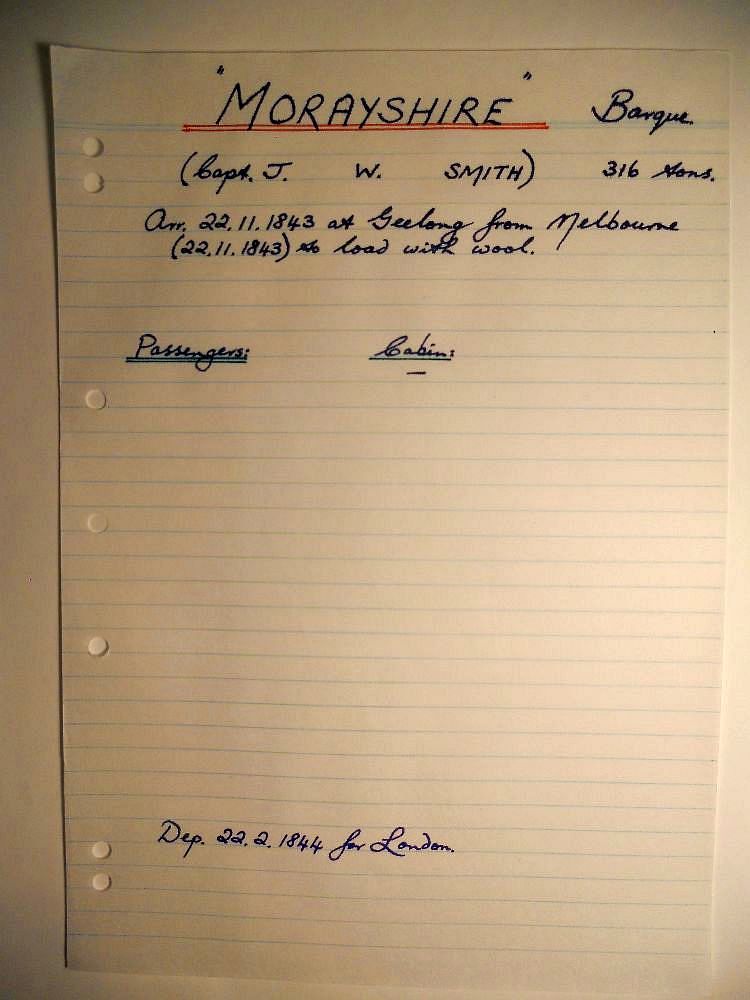 "MORAYSHIRE" Barque.
(Capt. J. W. SMITH) 316 tons.
Arr. 22.11.1843 at Geelong from Melbourne
(22.11.1843) to load with wool.
Passengers: Cabin:
—
Dep. 22.2.1844 for London.